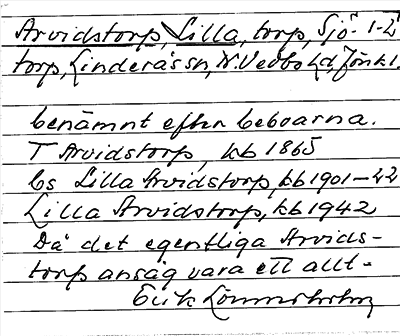 Arvidstorp, Lilla, torp, Sjö- 1-2
torp, Linderås sn, N. Vedbo hd, Jönk l.
benämnt efter beboarna.
T Arvidstorp, kb 1865
bs Lilla Arvidstorp, kb 1901-22
Lilla Arvidstorp, kb 1942
Då det egentliga Arvids-
torp ansåg vara ett allt-
Erik